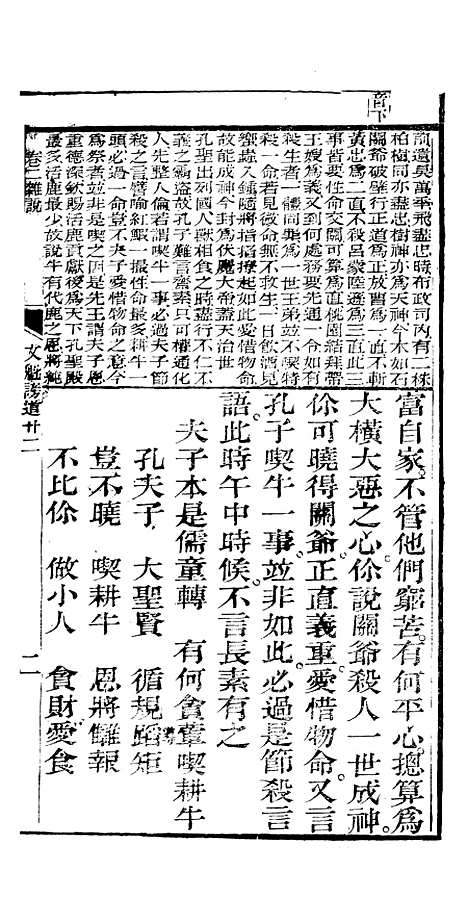 音下
訶遺吳萬平飛盡忠時布政司內有二株
柏樹同亦盡忠樹神亦爲天神今木如石
關爺破壁行正道爲正放曹爲一直不斬
黃忠爲二直不殺呂蒙陸遜爲三直此三
事皆要性命交關可算爲直桃園結拜帶
王嫂爲義又到何處務要先通一令如有
殺生者一體同奠爲一世王弟並不殘害
殺一命若見微命無不救生一日飲酒見
蠻蟲入鍾隨將指搭撩起如此愛惜物命
故能成神今封爲伏魔大帝蓋天治世
孔聖出列國人獸相食之時盡行不仁不
義之覇盜故孔子難言齋素只可權通化
人先整人倫若謂喫牛一事必過夫子節
殺之言譬喻紅鰕一撮性命最多耕牛一
頭必過一命豈不夫子愛惜物命之意今
爲祭者並非是喫之因是先王謂夫子恩
重德深欽賜活鹿貢獻後爲天下孔聖殿
最多活鹿最少故說牛有代鹿之恩將純
卷二雜說
文魁謗道 廿二
富自家。不管他們窮苦。有何平心。總算爲
大橫大惡之心。你說關爺殺人一世成神。
你可曉得關爺正直義重。愛惜物命。又言
孔子喫牛一事。並非如此。必過是節殺言
語。此時午中時候。不言長素有之
夫子本是儒童轉 有何貪葷喫耕牛
孔夫子 大聖賢 循規蹈矩
豈不曉 喫耕牛 恩將讎報
不比你 做小人 貪財愛食
二